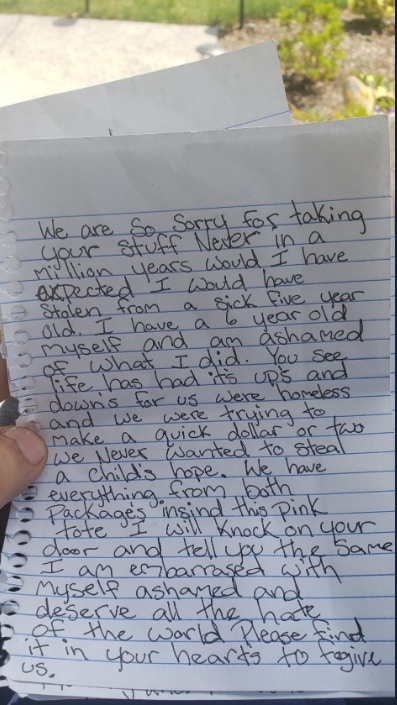 We are so sorry for taking
your stuff Never in a
million years would I have
expected I would have
stolen from a sick five year
old. I have a 6 year old
myself and am ashamed
of what I did. You see
life has had it's up's and
down's for us were homeless
and we were trying to
make a quick dollar or two
we Never wanted to steal
a child's hope. We have
everything from both
Package's insind this pink
tote I will knock on your
door and tell you the same
I am embarrased with
myself ashamed and
deserve all the hate
of the world Please find
it in your heart's to fogive
us.